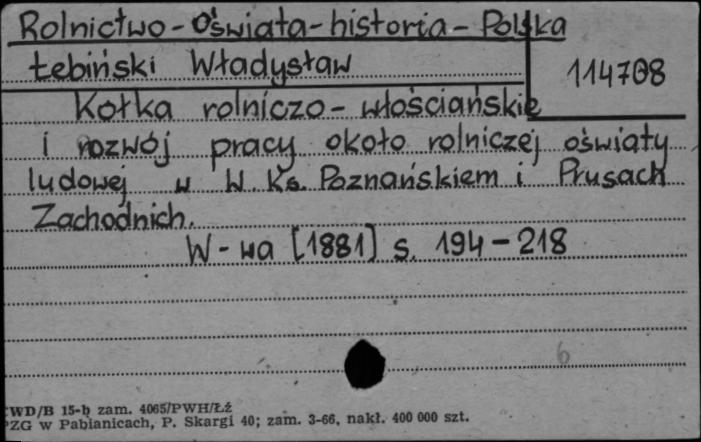 Rolnictwo - Oświata - historia - Polska
Łebiński Władysław
114708
Kółka rolniczo - włościańskie
i rozwój pracy około rolniczej oświaty
ludowej w W. Ks. Poznańskiem i Prusach
Zachodnich.
W-wa [1881] s. 194-218
6
WD/B 15-b zam. 4065/PWH/Łź
PZG w Pabianicach, P. Skargi 40; zam. 3-66, nakł. 400 000 szt.